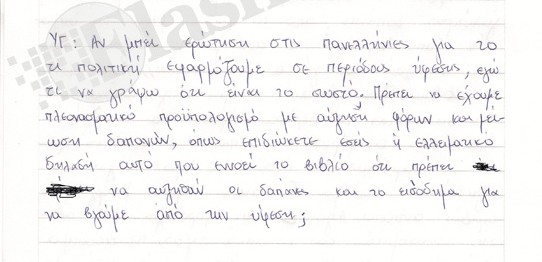 ΥΓ: Αν μπει ερώτηση στις πανελλήνιες για το
τι πολιτική εφαρμόζουμε σε περιόδους ύφεσης, εγώ
τι να γράψω ότι είναι το σωστό. Πρέπει να έχουμε
πλεονασματικό προϋπολογισμό με αύξηση φόρων και μεί-
ωση δαπανών, όπως επιδιώκετε εσείς ή ελλειματικό
δηλαδή αυτό που εννοεί το βιβλίο ότι πρέπει
να αυξηθούν οι δαπάνες και το εισόδημα για
να βγούμε από την ύφεση;